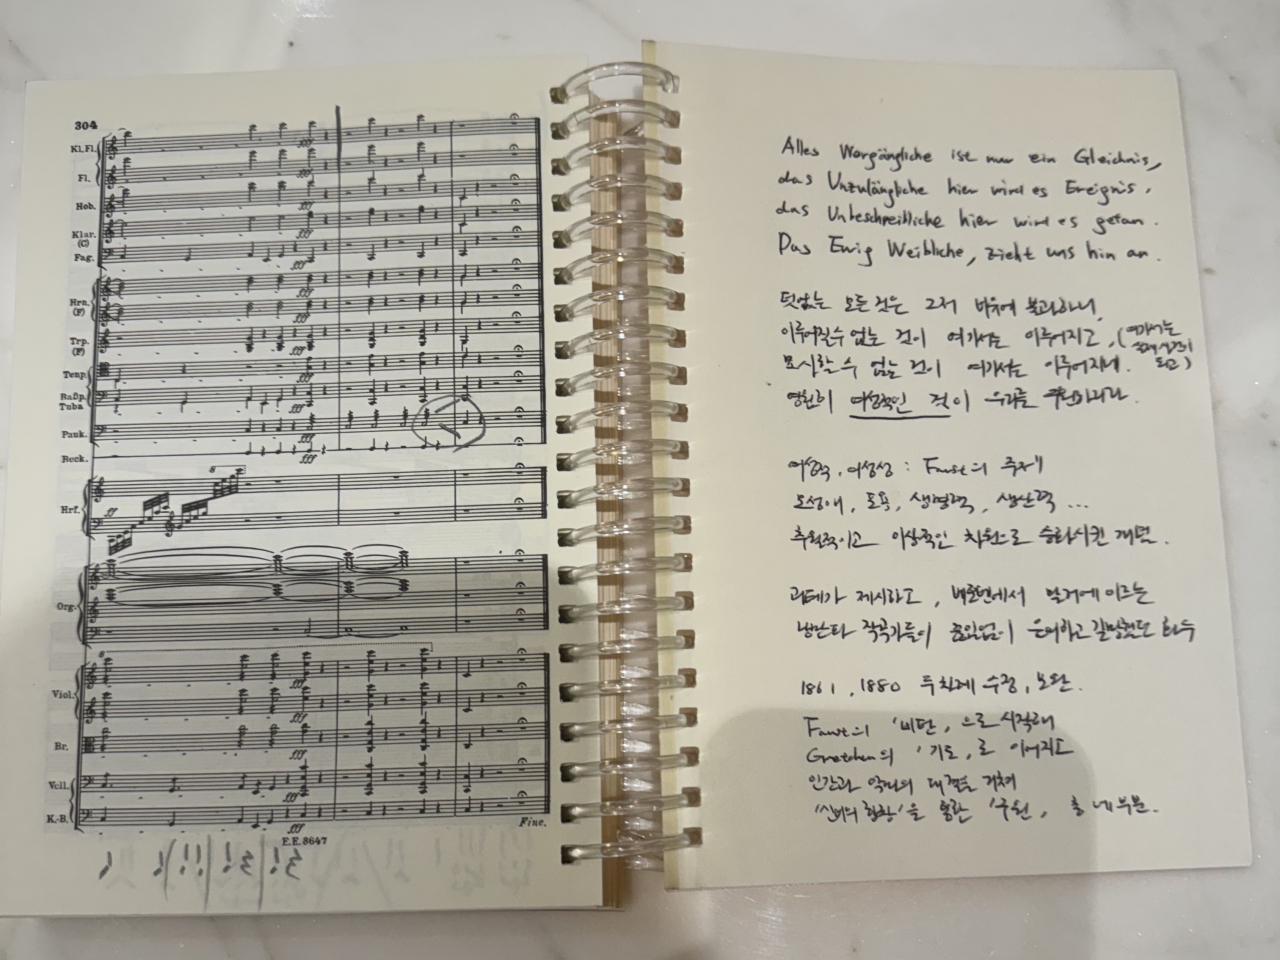 304
Kl.Fl.
Fl.
Hob.
Klar.
(C)
Fag.
Hrn.
(F)
Trp.
(F)
Tenp.
Baßp.
Tuba
Pauk.
Beck.
Hrf.
Org.
Viol.
Br.
Vcll.
K.-B.
fff
fff
fff
fff
fff
fff
fff
fff
8
ff
8
fff
fff
fff
fff
fff
E.E. 8647
Fine.
Alles Worgängliche ist nur ein Gleichnis,
das Unzulängliche hier wird es Ereignis.
das Unbeschreibliche hier wird es getan.
Das Ewig Weibliche, zieht uns hin an.
덧없는 모든 것은 그저 비유에 불과하니,
이루어질 수 없는 것이 여기서는 이루어지고, (여기서는
묘사할 수 없는 것이 여기서는 이루어지네. 되고)
영원히 여성적인 것이 우리를 구원하리라.
여성적, 여성성 : Faust의 주제
모성애, 포용, 생명력, 생산력 ...
추월적이고 이상적인 차원으로 승화시킨 개념.
괴테가 제시하고, 베토벤에서 말러에 이르는
낭만파 작곡가들이 끊임없이 은하고 갈망했던 화두
1861, 1880 두 차례 수정, 보완.
Faust의 '비탄'으로 시작해
Gretchen의 '기도'로 이어지고
인간과 악마의 대결을 거쳐
'신비의 합창'을 통한 '구원', 총 네 부분.